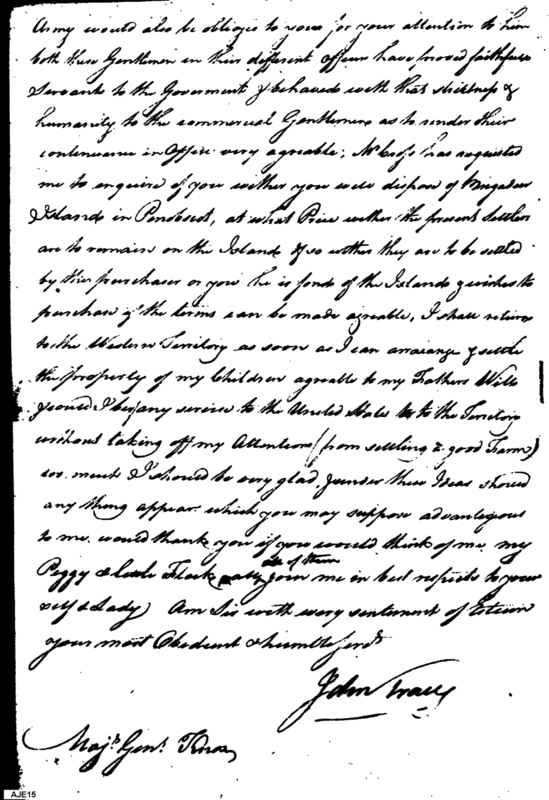 Army would also be obliged to you for your attention to him
both these Gentlemen in their different offices have proved faithfull
Servant to the Goverment & behaved with that strictness &
humanity to the commercial Gentlemen as to render their
continuance in Office very agreable; Mr has requested
me to enquire of you wither you will dispose of Brigadeer
Island in Penobscot, at what Price wither the present Settlers
are to remain on the Island if so wither they are to be settled
by this purchaser or you he is fond of the Islands & wishes to
purchase if the terms can be made agreable, I shall return
to the Western Territory as soon as I can arrainge & settle
the property of my Children agreable to my Fathers Will
I could I be of any service to the United States or to the Territory
without taking off my Attention (from settling a good Farm)
too much I should be very glad, & under these Ideas should
any thing appear which you may suppose advantageous
to me would thank you if you would think of me my
Peggy & little Flock all of them join me in best respects to your
self & Lady) Am Sir with every sentiment of Esteem
your most Obedient & humble Servt
John
Majr. Genl. Knox
AJE15